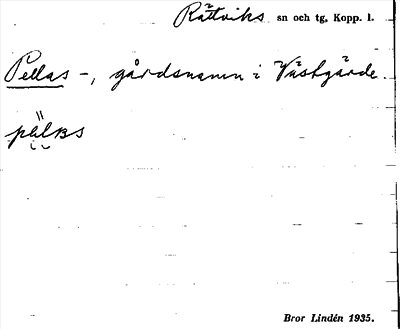 Rättviks sn och tg, Kopp. l.
Pellas -, gårdsnamn i Västgärde
Bror Lindén 1935.